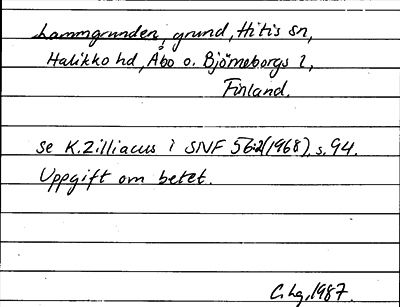 Lammgrunden, grund, Hitis sn,
Halikko hd, Åbo o. Björneborgs l,
Finland.
Se K. Zilliacus i SNF 56:2(1968), s. 94.
Uppgift om betet.
1987.